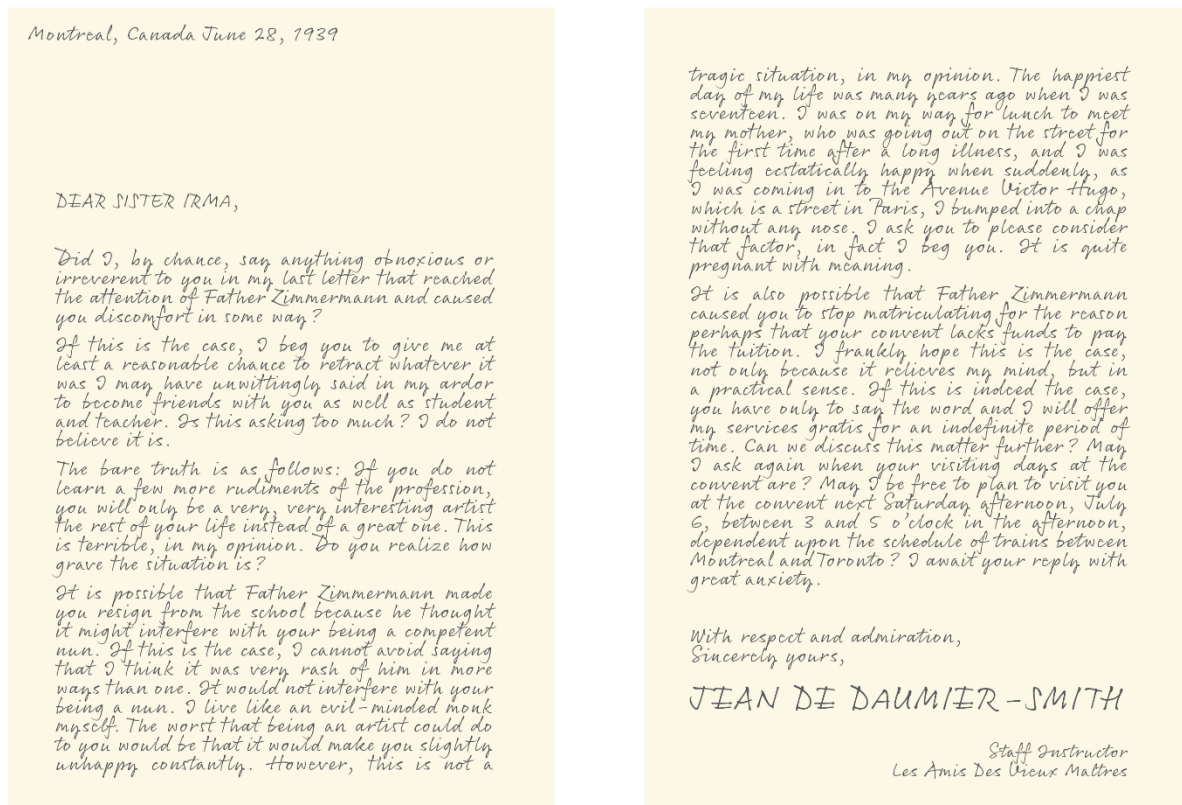 Montreal, Canada June 28, 1939
DEAR SISTER IRMA,
Did I, by chance, say anything obnoxious or
irreverent to you in my last letter that reached
the attention of Father Zimmermann and caused
you discomfort in some way?
If this is the case, I beg you to give me at
least a reasonable chance to retract whatever it
was I may have unwittingly said in my ardor
to become friends with you as well as student
and teacher. Is this asking too much? I do not
believe it is.
The bare truth is as follows: If you do not
learn a few more rudiments of the profession,
you will only be a very, very interesting artist
the rest of your life instead of a great one. This
is terrible, in my opinion. Do you realize how
grave the situation is?
It is possible that Father Zimmermann made
you resign from the school because he thought
it might interfere with your being a competent
nun. If this is the case, I cannot avoid saying
that I think it was very rash of him in more
ways than one. It would not interfere with your
being a nun. I live like an evil-minded monk
myself. The worst that being an artist could do
to you would be that it would make you slightly
unhappy constantly. However, this is not a
tragic situation, in my opinion. The happiest
day of my life was many years ago when I was
seventeen. I was on my way for lunch to meet
my mother, who was going out on the street for
the first time after a long illness, and I was
feeling ecstatically happy when suddenly, as
I was coming in to the Avenue Victor Hugo,
which is a street in Paris, I bumped into a chap
without any nose. I ask you to please consider
that factor, in fact I beg you. It is quite
pregnant with meaning.
It is also possible that Father Zimmermann
caused you to stop matriculating for the reason
perhaps that your convent lacks funds to pay
the tuition. I frankly hope this is the case,
not only because it relieves my mind, but in
a practical sense. If this is indeed the case,
you have only to say the word and I will offer
my services gratis for an indefinite period of
time. Can we discuss this matter further? May
I ask again when your visiting days at the
convent are? May I be free to plan to visit you
at the convent next Saturday afternoon, July
6, between 3 and 5 o'clock in the afternoon,
dependent upon the schedule of trains between
Montreal and Toronto? I await your reply with
great anxiety.
With respect and admiration,
Sincerely yours,
JEAN DE DAUMIER-SMITH
Staff Instructor
Les Amis Des Vieux Maîtres